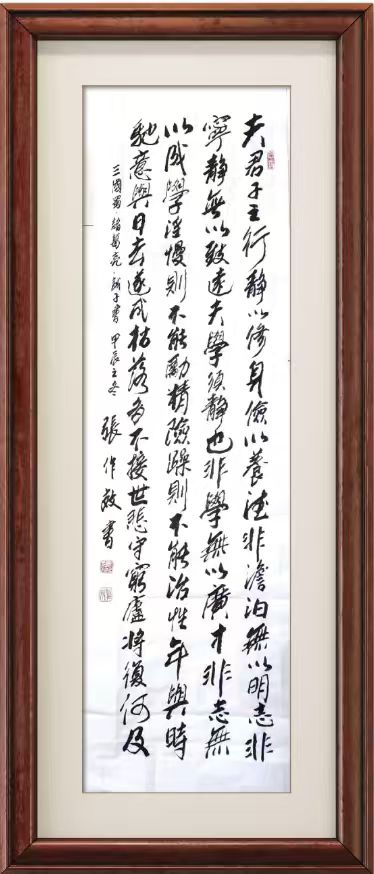 夫君子之行靜以修身儉以養德非澹泊無以明志非
寧靜無以致遠夫學須靜也非學無以廣才非志無
以成學淫慢則不能勵精險躁則不能治性年與時
馳意與日去遂成枯落多不接世悲守窮廬將復何及
三國蜀·諸葛亮·誡子書 甲辰之冬 張作書